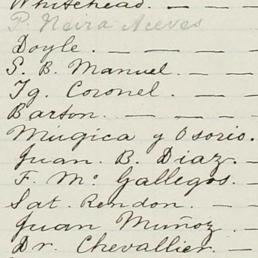 Whitehead. — —
P. Neira Aceves
Doyle. — — — —
S. B. Manuel. — —
Ig. Coronel. — —
Barton. — — — —
Mugica y Osorio.
Juan. B. Diaz. —
F. Mº Gallegos. —
Sat. Rendon. — —
Juan Muñoz. — —
Dr. Chevallier. —